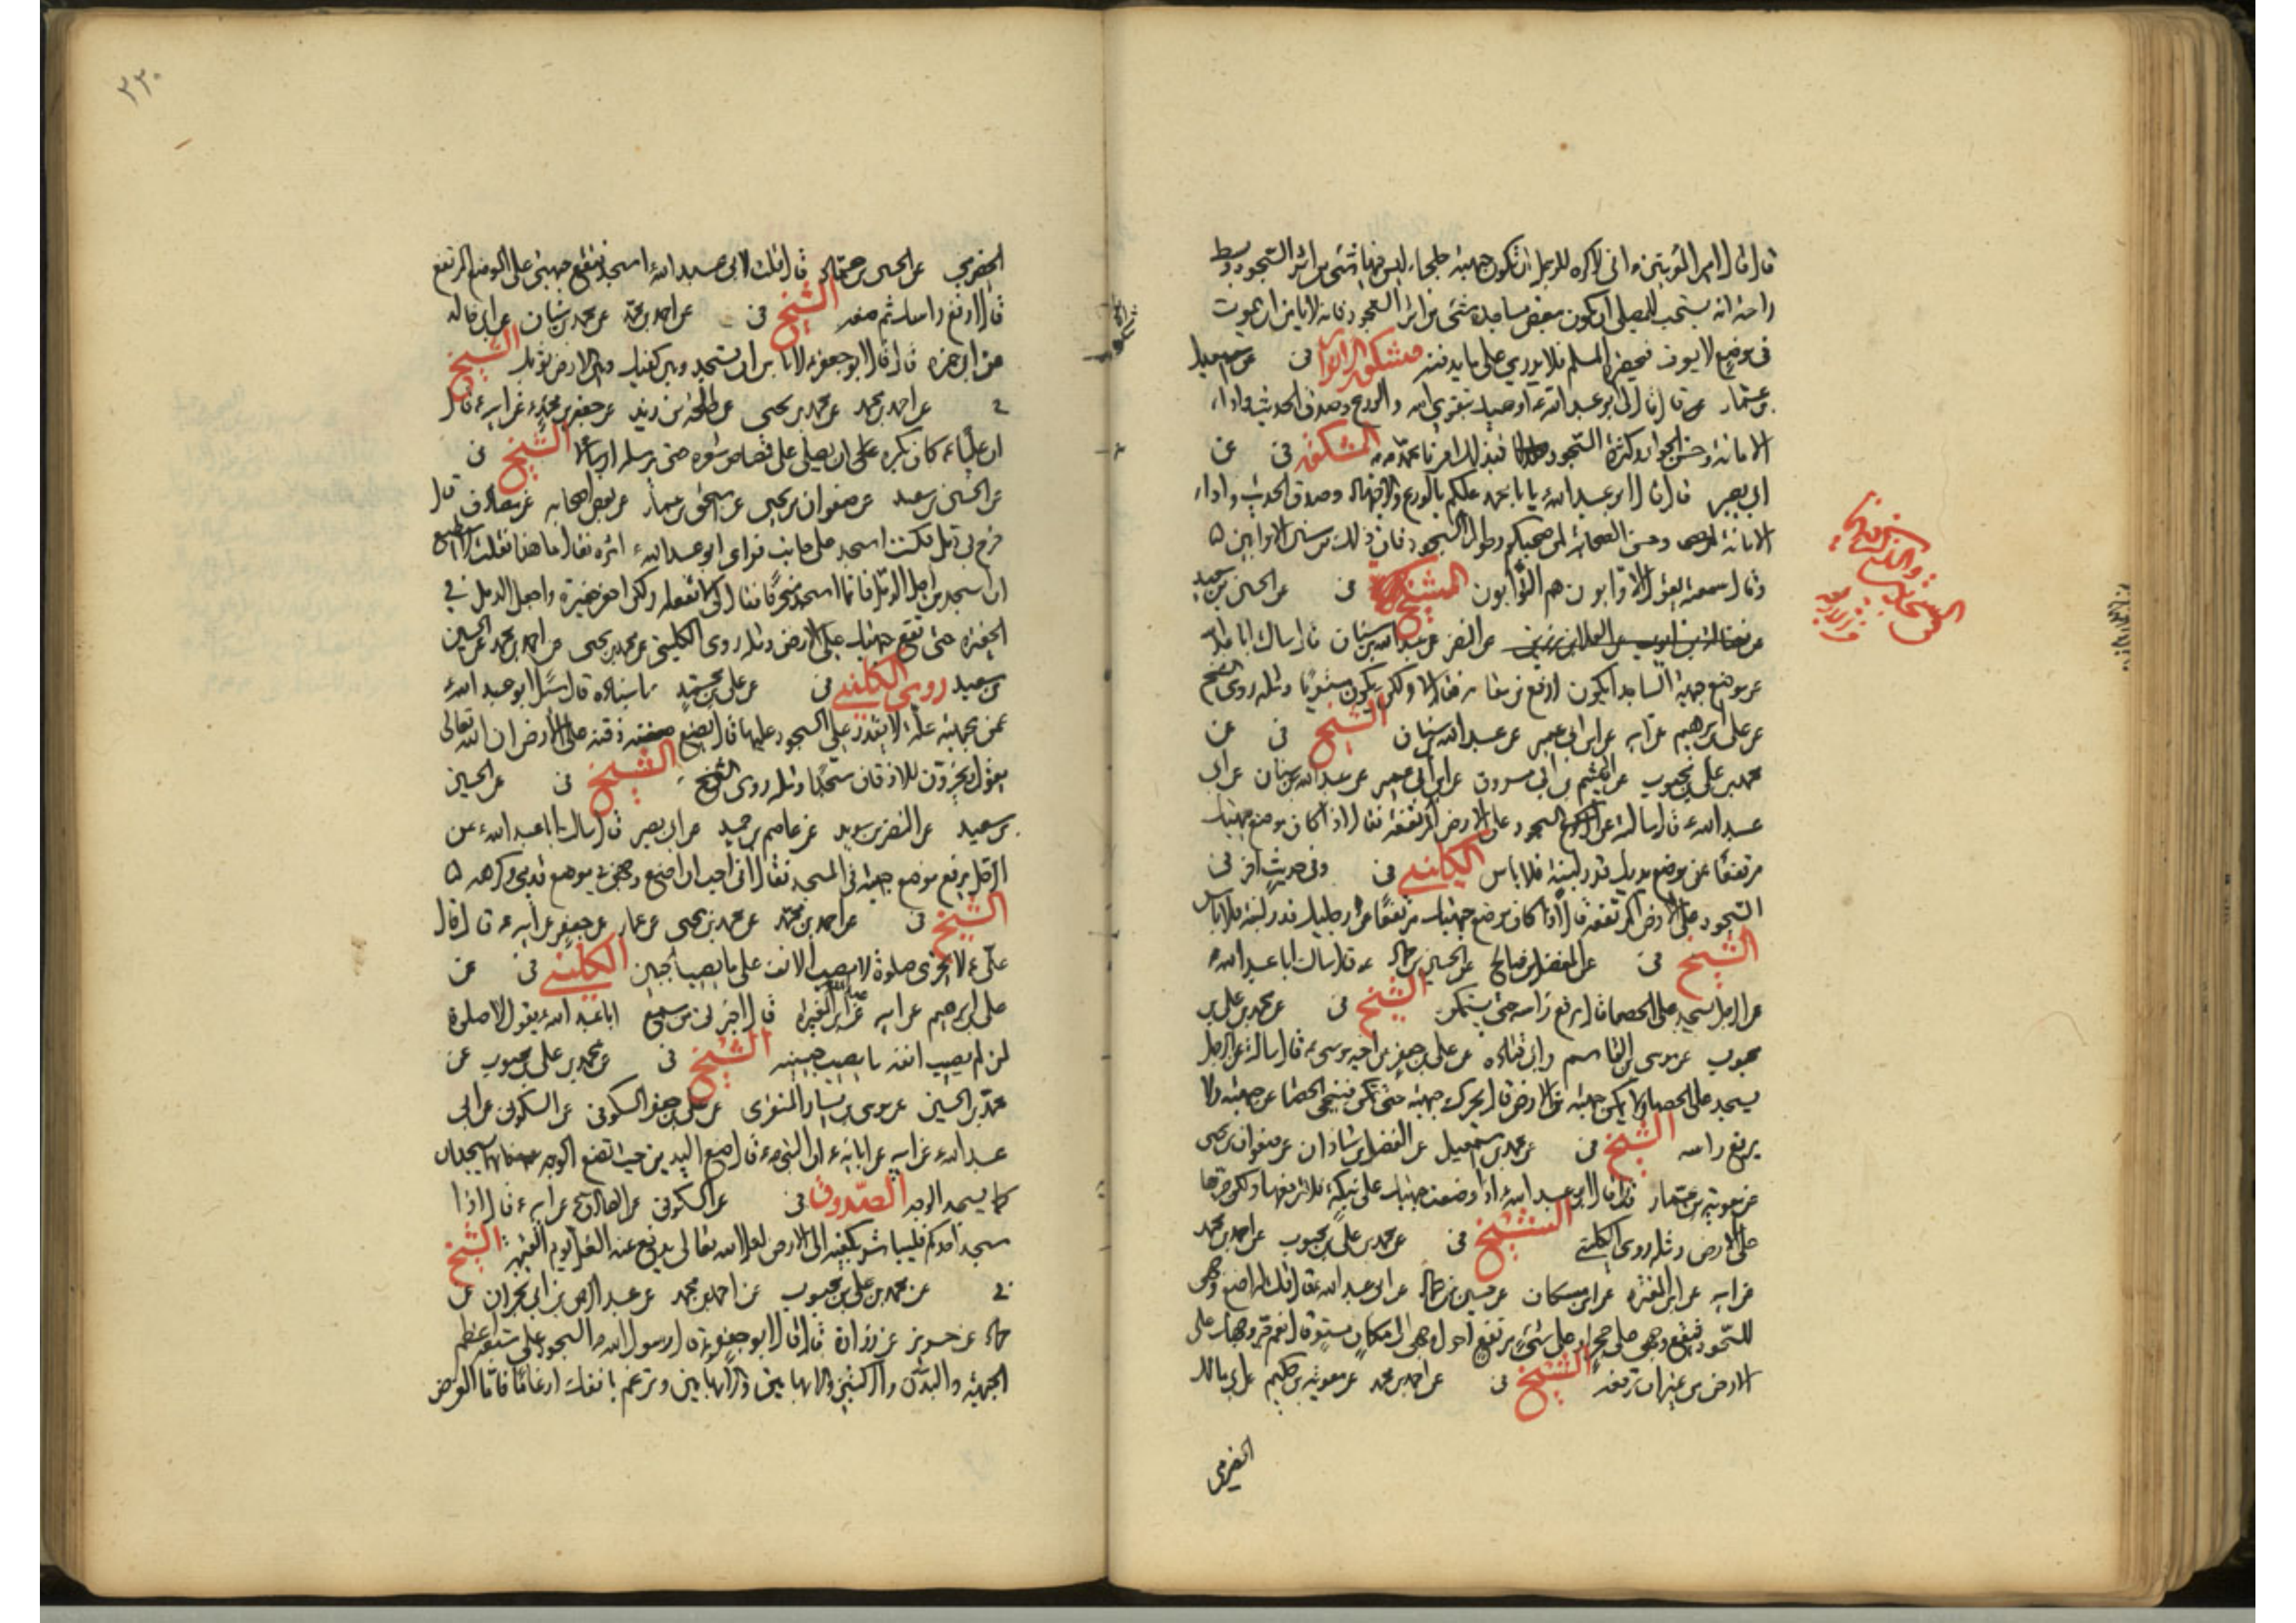 قال قال امير المؤمنين ع انى لاكره للرجل ان تكون جبهته جلحاء ليس فيها شئ من اثر السجود وبسط
راحته انه يستحب للمصلى ان يكون ببعض مساجده شئ من اثر السجود فانه لا يامن ان يموت
فى موضع لا يعرف فيحضره المسلم فلا يدرى على ما يدفنه مشكوة الانوار فى عن
بن عمار قال قال لى ابو عبد الله ع اوصيك بتقوى الله والورع وصدق الحديث واداء
الامانة وحسن الجوار وكثرة السجود فبذلك امرنا محمد ص المشكوة فى عن
ابى بصير قال قال ابو عبد الله ع يا ابا محمد عليكم بالورع والاجتهاد وصدق الحديث واداء
الامانة وحسن الصحابة لمن صحبكم وطول السجود فان ذلك من سنن الاوابين
وقال سمعته يقول الاوابون هم التوابون الشيخ فى عن الحسين بن سعيد
عن فضالة بن ايوب عن العلا بن رزين عن النضر عن عبد الله بن سنان قال سالت ابا عبد الله
عن موضع جبهة الساجد ايكون ارفع من مقامه فقال لا ولكن يكون مستويا ومثله روى الشيخ
عن على بن ابرهيم عن ابيه عن ابن ابى عمير عن عبد الله بن سنان الشيخ فى عن
محمد بن على بن محبوب عن الهيثم بن ابى مسروق عن ابن ابى عمير عن عبد الله بن سنان عن ابى
عبد الله ع قال سالته عن السجود على الارض المرتفعة فقال اذا كان موضع جبهتك
مرتفعا عن موضع بدنك قدر لبنة فلا باس الكلينى فى وفى حديث اخر فى
السجود على الارض المرتفعة قال اذا كان موضع جبهتك مرتفعا عن رجليك قدر لبنة فلا باس
الشيخ فى عن المفضل بن صالح عن الحسين بن حماد قال سالت ابا عبد الله ع
عن الرجل يسجد على الحصا قال يرفع راسه حتى يستمكن الشيخ فى عن محمد بن على بن
محبوب عن موسى بن القاسم وابى قتادة عن على بن جعفر عن اخيه موسى ع قال سالته عن الرجل
يسجد على الحصا ولا يمكن جبهته من الارض قال يحرك جبهته حتى تمكن فينحى الحصا عن جبهته ولا
يرفع راسه الشيخ فى عن محمد بن اسمعيل عن الفضل بن شاذان عن صفوان بن يحيى
عن معوية بن عمار قال قال ابو عبد الله ع اذا وضعت جبهتك على نبكة فلا ترفعها ولكن جرها
على الارض ومثله روى الكلينى الشيخ فى عن محمد بن على بن محبوب عن احمد بن محمد
عن ابيه عن ابن المغيرة عن ابن مسكان عن حسين بن حماد عن ابى عبد الله ع قال قلت له اضع وجهى
للسجود فيقع وجهى على حجر او على شئ مرتفع احول وجهى الى مكان مستو قال نعم جر وجهك على
الارض من غير ان ترفعه الشيخ فى عن احمد بن محمد عن معوية بن حكيم عن ابى مالك
الحضرمى
٢٣٠
الحضرمى عن الحسن بن حماد قال قلت لابى عبد الله ع اسجد فتقع جبهتى على الموضع المرتفع
قال ارفع راسك ثم ضعه الشيخ فى عن احمد بن محمد عن محمد بن سنان عن ابن خالد
عن ابى حمزه قال قال ابو جعفر ع لا باس ان تسجد وبين كفيك وبين الارض ثوبك الشيخ
فى عن احمد بن محمد عن محمد بن يحيى عن طلحة بن زيد عن جعفر بن محمد ع عن ابيه ع قال
ان عليا ع كان يكره ان يصلى على قصاص شعره حتى يرسله ارسالا الشيخ فى
عن الحسين بن سعيد عن صفوان بن يحيى عن اسحق بن عمار عن بعض اصحابه عن مصادف قال
خرج بى دمل فكنت اسجد على جانب فراى ابو عبد الله ع اثره فقال ما هذا فقلت لا استطيع
ان اسجد من اجل الدمل فانما اسجد منحرفا فقال لى لا تفعل ولكن احفر حفيرة واجعل الدمل فى
الحفرة حتى تقع جبهتك على الارض ومثله روى الكلينى عن محمد بن يحيى عن احمد بن محمد عن الحسين
بن سعيد روى الكلينى فى عن على بن محمد باسناده قال سئل ابو عبد الله ع
عمن بجبهته علة لا يقدر على السجود عليها قال يضع ذقنه على الارض ان الله تعالى
يقول يخرون للاذقان سجدا ومثله روى الشيخ الشيخ فى عن الحسين
بن سعيد عن النضر بن سويد عن عاصم بن حميد عن ابى بصير قال سالت ابا عبد الله ع عن
الرجل يرفع موضع جبهته فى المسجد فقال انى احب ان اضع وجهى فى موضع قدمى وكرهه
الشيخ فى عن احمد بن محمد عن محمد بن يحيى عن عمار عن جعفر عن ابيه ع قال قال
على ع لا تجزى صلوة لا يصيب الانف على ما يصيب الجبين الكلينى فى عن
على بن ابرهيم عن ابيه عن عبد الله بن المغيرة قال اخبرنى من سمع ابا عبد الله ع يقول لا صلوة
لمن لم يصب انفه ما يصيب جبينه الشيخ فى عن محمد بن على بن محبوب عن
محمد بن الحسين عن موسى بن يسار المنقرى عن على بن جعفر السكونى عن السكونى عن ابى
عبد الله ع عن ابيه عن ابائه ع ان النبى ص قال ضع اليدين حيث تضع الوجه فانهما يسجدان
كما يسجد الوجه الصدوق فى عن السكونى عن الصادق ع عن ابيه ع قال اذا
سجد احدكم فليباشر بكفيه الى الارض لعل الله تعالى يدفع عنه الغل يوم القيمة الشيخ
فى عن محمد بن على بن محبوب عن احمد بن محمد عن عبد الرحمن بن ابى نجران عن
حماد عن حريز عن زرارة قال قال ابو جعفر ع قال رسول الله ص السجود على سبعة اعظم
الجبهة واليدين والركبتين والابهامين وترغم بانفك ارغاما فاما الفرض